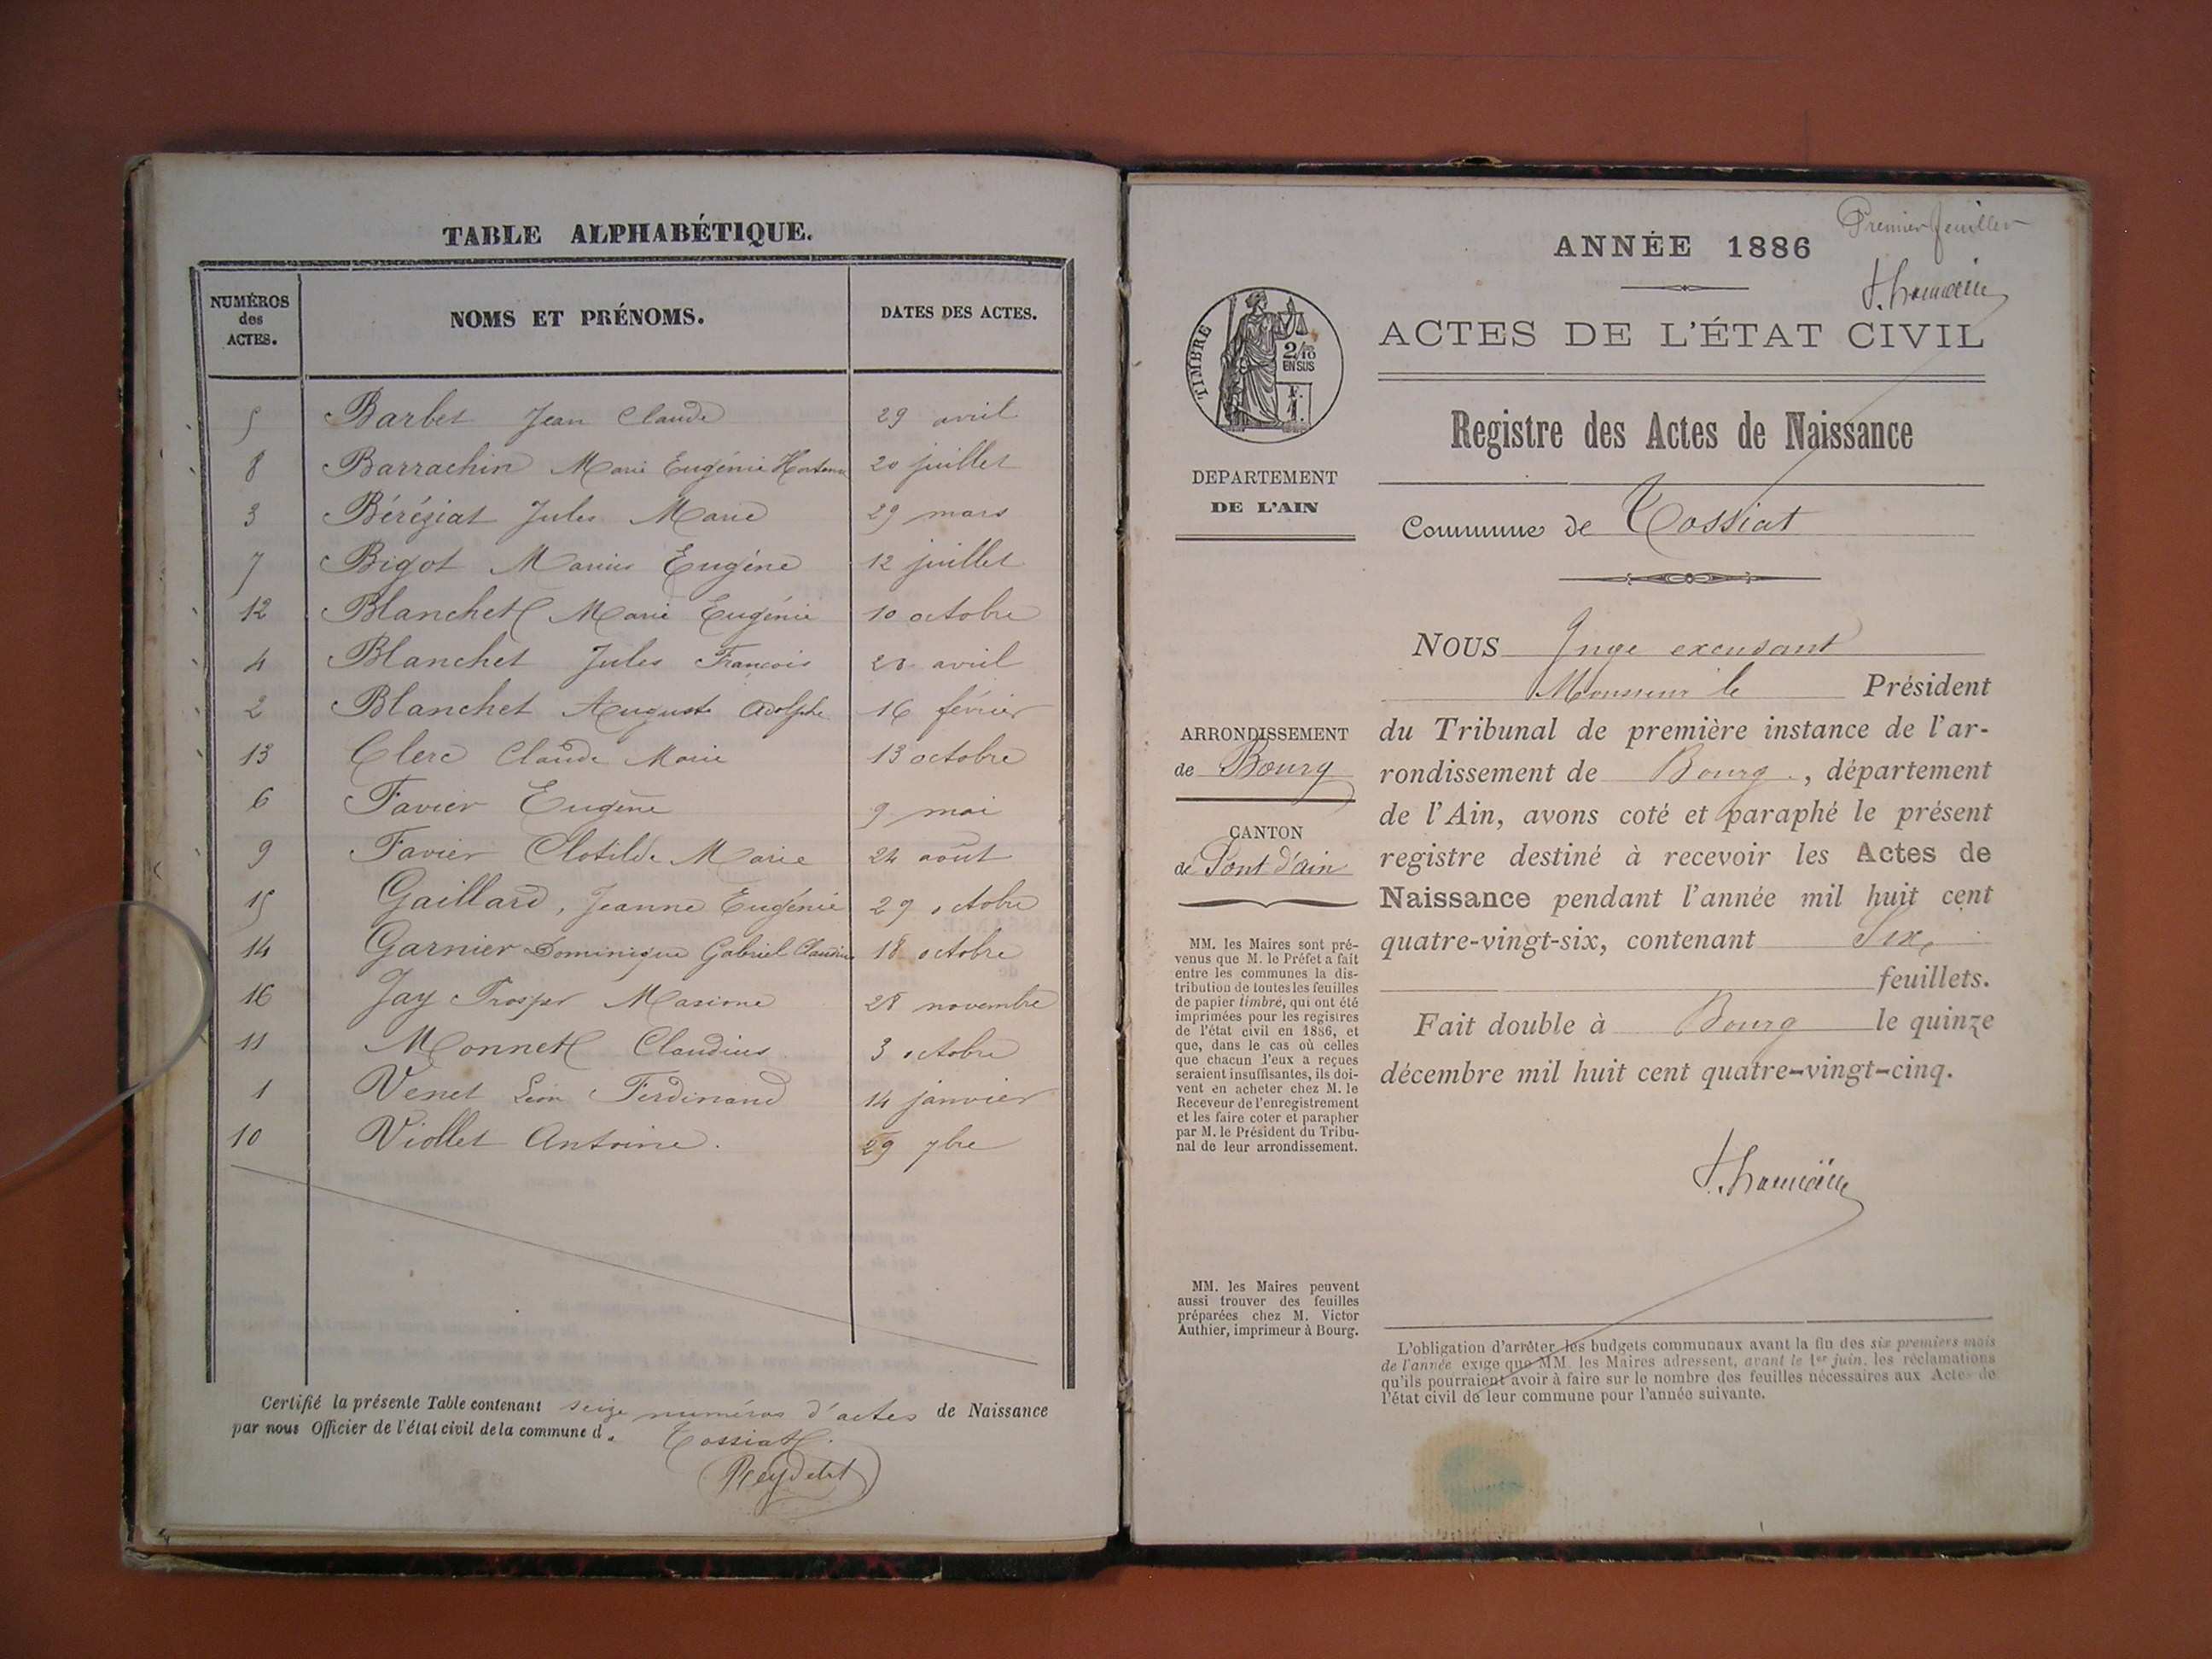 TABLE ALPHABÉTIQUE.
NUMÉROS des ACTES.
NOMS ET PRÉNOMS.
DATES DES ACTES.
5 Barbet Jean Claude 29 avril
8 Barrachin Marie Eugénie Hortense 20 juillet
3 Béréziat Jules Marie 29 mars
7 Bigot Marius Eugène 12 juillet
12 Blanchet Marie Eugénie 10 octobre
4 Blanchet Jules François avril
2 Blanchet Auguste Adolphe 16 février
13 Clerc Claude Marie 13 octobre
6 Favier Eugène 9 mai
9 Favier Clotilde Marie 24 août
15 Gaillard, Jeanne Eugénie 29 octobre
14 Garnier Dominique Gabriel Claudius 18 octobre
16 Jay Prosper 28 novembre
11 Monnet Claudius 3 octobre
1 Venet Léon Ferdinand 14 janvier
10 Viollet Antoine. 29 7bre
Certifié la présente Table contenant seize numéros d'actes de Naissance
par nous Officier de l'état civil de la commune d. Tossiat.
Reydelet
Premier feuillet
ANNÉE 1886
ACTES DE L'ÉTAT CIVIL
TIMBRE
2/10
EN SUS
F.
1.
Registre des Actes de Naissance
DEPARTEMENT
DE L'AIN
Commune de Tossiat
NOUS Juge excusant
Monsieur le Président
du Tribunal de première instance de l'ar-
rondissement de Bourg, département
de l'Ain, avons coté et paraphé le présent
registre destiné à recevoir les Actes de
Naissance pendant l'année mil huit cent
quatre-vingt-six, contenant Six
feuillets.
Fait double à Bourg le quinze
décembre mil huit cent quatre-vingt-cinq.
ARRONDISSEMENT
de Bourg
CANTON
de Pont d'ain
MM. les Maires sont pré-
venus que M. le Préfet a fait
entre les communes la dis-
tribution de toutes les feuilles
de papier timbré, qui ont été
imprimées pour les registres
de l'état civil en 1886, et
que, dans le cas où celles
que chacun d'eux a reçues
seraient insuffisantes, ils doi-
vent en acheter chez M. le
Receveur de l'enregistrement
et les faire coter et parapher
par M. le Président du Tribu-
nal de leur arrondissement.
MM. les Maires peuvent
aussi trouver des feuilles
préparées chez M. Victor
Authier, imprimeur à Bourg.
L'obligation d'arrêter les budgets communaux avant la fin des six premiers mois
de l'année exige que MM. les Maires adressent, avant le 1er juin, les réclamations
qu'ils pourraient avoir à faire sur le nombre des feuilles nécessaires aux Actes de
l'état civil de leur commune pour l'année suivante.